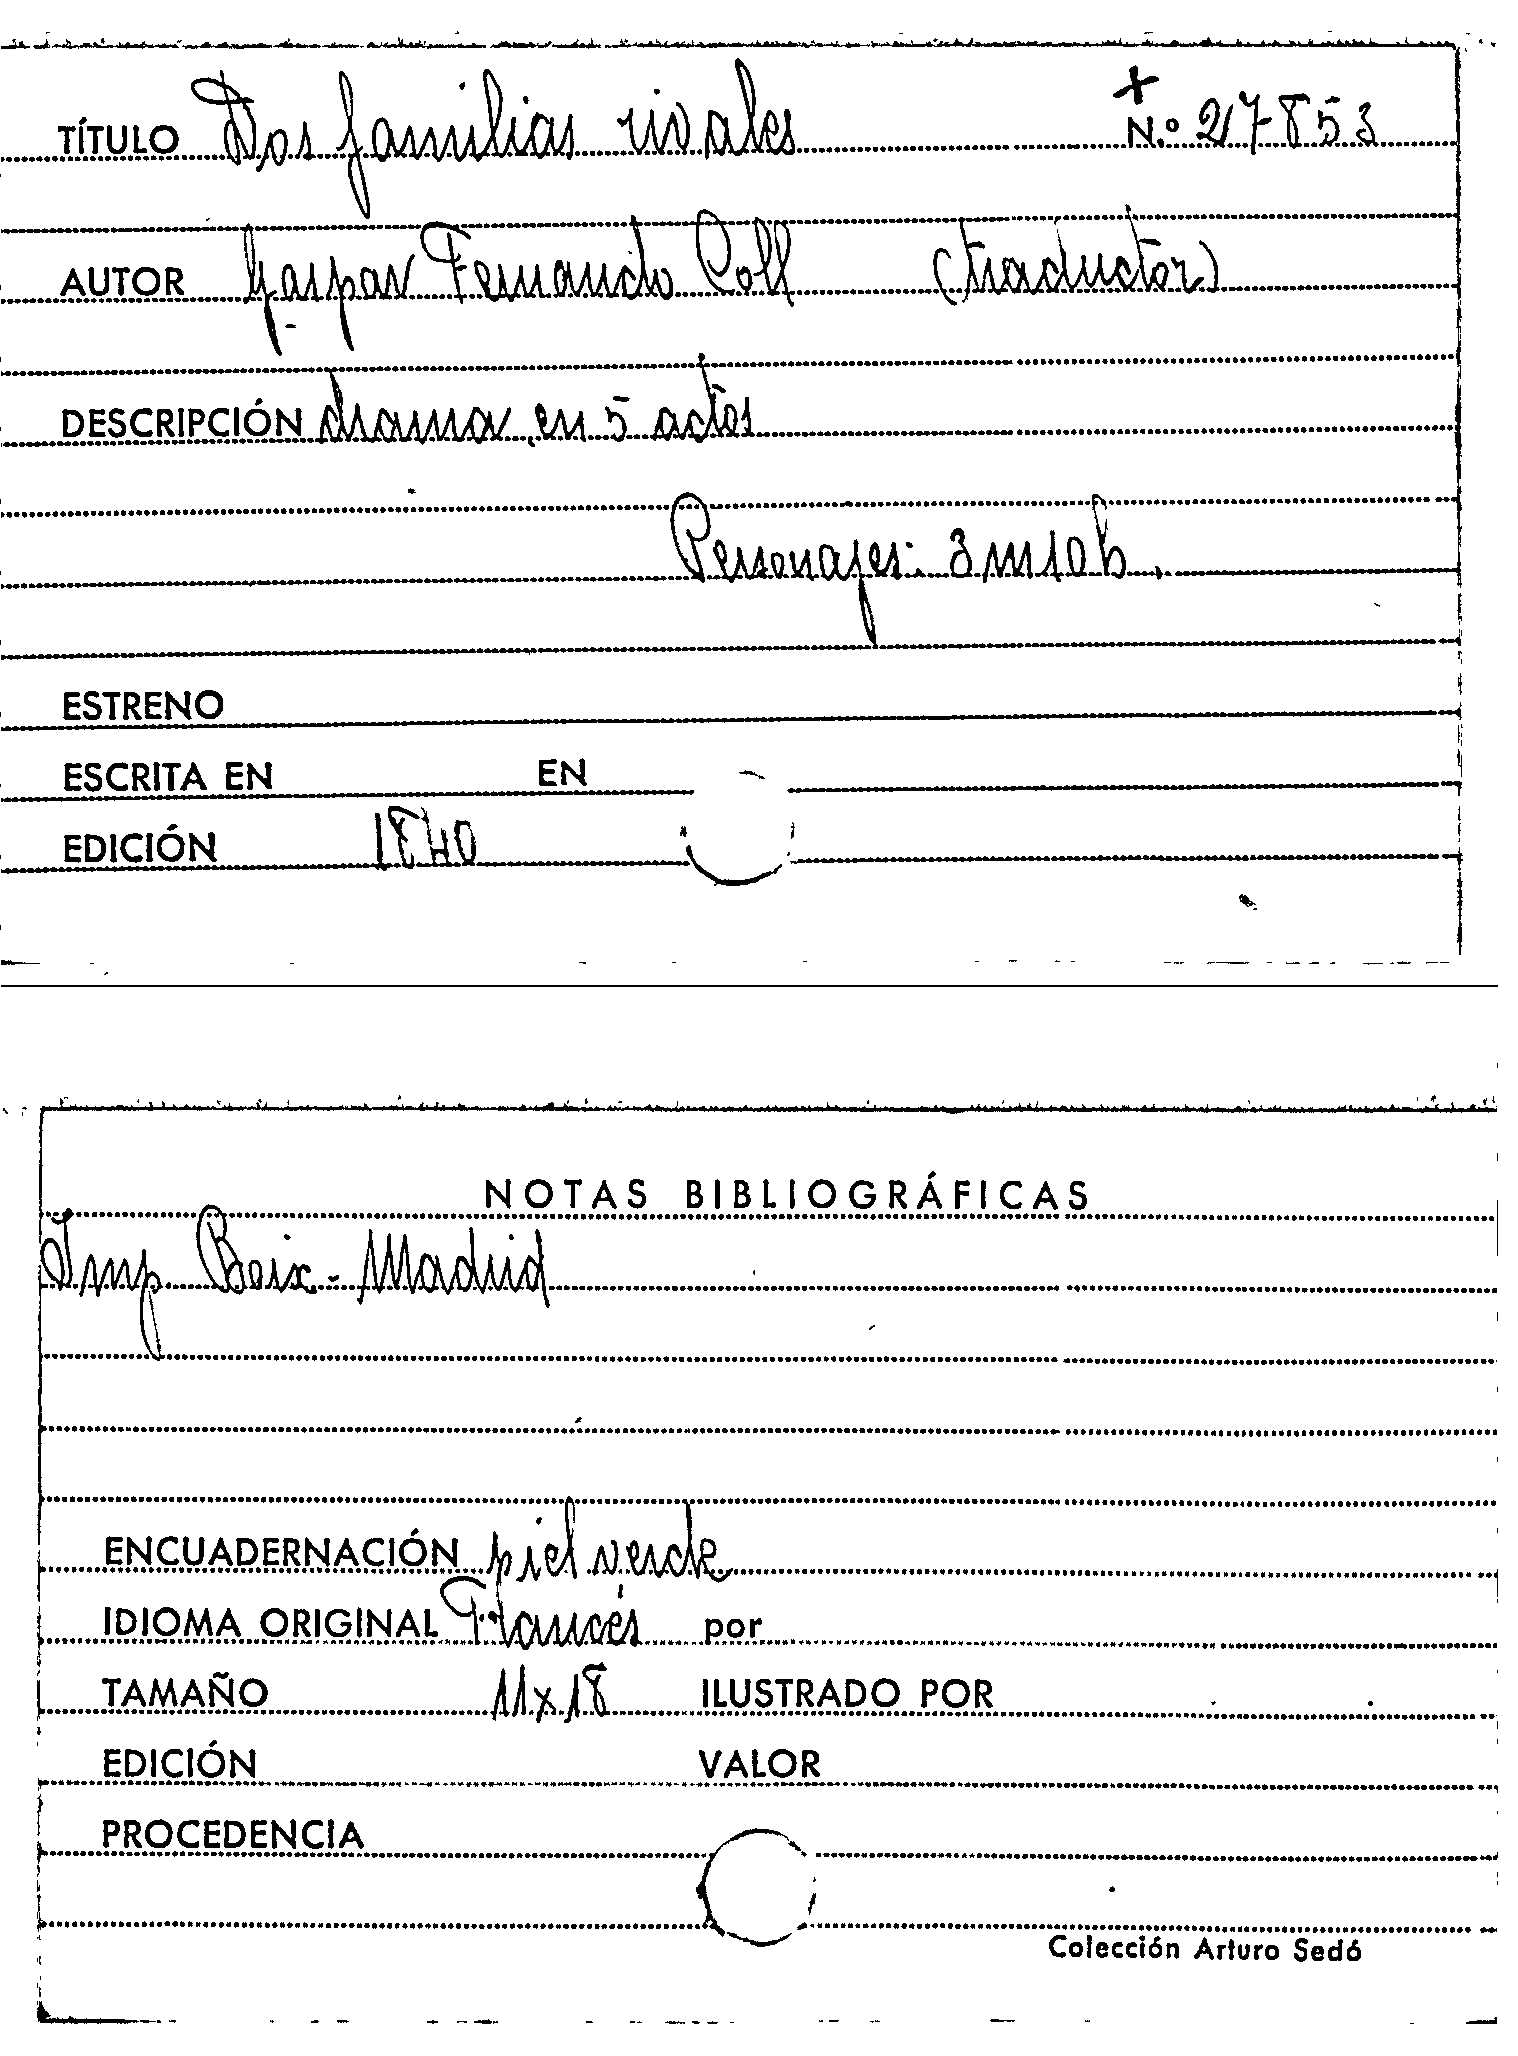 TÍTULO Dos familias rivales + N.º 27853
AUTOR Gaspar Fernando Coll (traductor)
DESCRIPCIÓN drama en 5 actos
Personajes: 3 m 10 h.
ESTRENO
ESCRITA EN EN
EDICIÓN 1840
NOTAS BIBLIOGRÁFICAS
Imp. Boix - Madrid
ENCUADERNACIÓN piel verde
IDIOMA ORIGINAL Francés por
TAMAÑO 11x18 ILUSTRADO POR
EDICIÓN VALOR
PROCEDENCIA
Colección Arturo Sedó